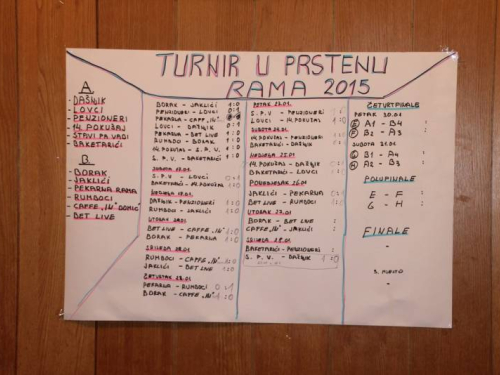 TURNIR U PRSTENU
RAMA 2015
A
- DAŠNIK
- LOVCI
- PENZIONERI
- 14. POKUŠAJ
- STAVI PA VADI
- BAKETARIĆI
B
- BORAK
- JAKLIĆI
- PEKARNA RAMA
- RUMBOCI
- CAFFE „IN" DOMIG
- BET LIVE
BORAK - JAKLIĆI 1:0
PENZIONERI - LOVCI
PEKARNA - CAFFE „IN"
LOVCI - DAŠNIK
PEKARNA - BET LIVE 1:0
RUMBOCI - BORAK
14. POKUŠAJ - S. P. V.
S. P. V. - BAKETARIĆI
S. P. V. - LOVCI 0:1
BAKETARIĆI - 14. POKUŠAJ
DAŠNIK - PENZIONERI
RUMBOCI - JAKLIĆI
UTORAK
BET LIVE - CAFFE „IN"
BORAK - PEKARNA
SRIJEDA
RUMBOCI - CAFFE „IN"
JAKLIĆI - BET LIVE
ČETVRTAK
PEKARNA - RUMBOCI 0:1
BORAK - CAFFE „IN" 1:0
PETAK 23.01
S. P. V - PENZIONERI
LOVCI - 14. POKUŠAJ
SUBOTA
14. POKUŠAJ - PENZIONERI
BAKETARIĆI - DAŠNIK
NEDJELJA 25.01
14. POKUŠAJ - DAŠNIK
BAKETARIĆI - LOVCI
PONEDJELJAK 26.01
JAKLIĆI - PEKARNA
BET LIVE - RUMBOCI
UTORAK 27.01
BORAK - BET LIVE :
CAFFE „IN" - JAKLIĆI :
SRIJEDA 28.01
BAKETARIĆI - PENZIONERI
S. P. V. - DAŠNIK
ČETVRTFINALE
PETAK 30.01
E A1 - B4 :
F B2 - A3 :
SUBOTA 31.01
G B1 - A4 :
H A2 - B3 :
POLUFINALE
E - F :
G - H :
FINALE
-
3. MJESTO
-